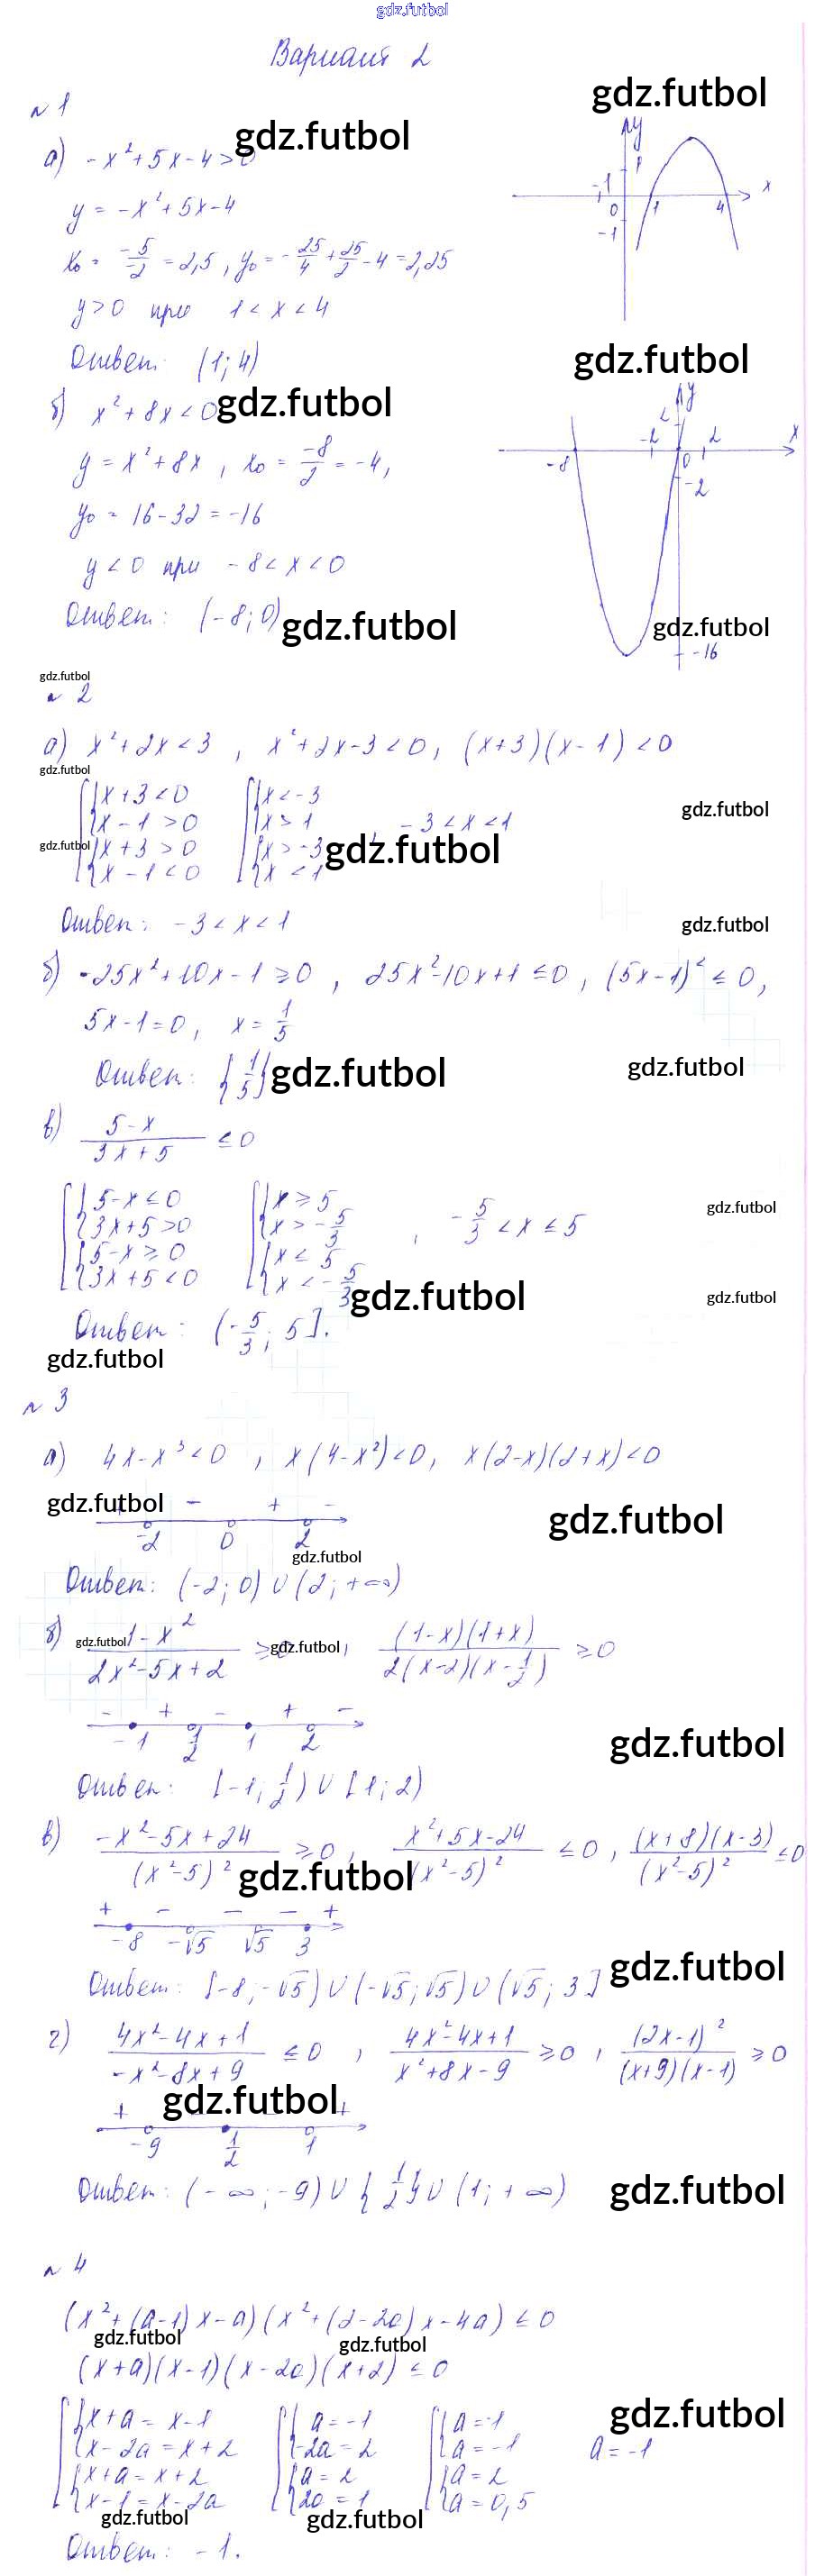 gdz.futbol
Вариант 2
gdz.futbol
№1
а) -x²+5x-4>0 gdz.futbol
y = -x²+5x-4
x₀ = -5/-2 = 2,5, y₀ = -25/4+25/2-4=2,25
y>0 при 1<x<4
Ответ: (1;4)
y
1
-1 0 1 4 x
-1
gdz.futbol
б) x²+8x<0 gdz.futbol
y=x²+8x, x₀ = -8/2 = -4,
y₀ = 16-32 = -16
y<0 при -8<x<0
Ответ: (-8;0) gdz.futbol
y
2
-8 -2 0 2 x
-2
gdz.futbol
-16
gdz.futbol
№ 2
а) x²+2x<3, x²+2x-3<0, (x+3)(x-1)<0
gdz.futbol
x+3<0 x<-3
gdz.futbol
x-1>0 x>1 , -3<x<1
gdz.futbol x+3>0 x>-3 gdz.futbol
x-1<0 x<1
Ответ: -3<x<1 gdz.futbol
б) -25x²+10x-1≥0, 25x²-10x+1≤0, (5x-1)²≤0,
5x-1=0, x=1/5
Ответ: {1/5} gdz.futbol gdz.futbol
в) 5-x/3x+5 ≤0
5-x≤0 x≥5 gdz.futbol
3x+5>0 x>-5/3 , -5/3<x≤5
5-x≥0 x≤5
3x+5<0 x<-5/3 gdz.futbol gdz.futbol
Ответ: (-5/3; 5].
gdz.futbol
№3
а) 4x-x³<0, x(4-x²)<0, x(2-x)(2+x)<0
gdz.futbol + - + - gdz.futbol
-2 0 2
gdz.futbol
Ответ: (-2;0)∪(2;+∞)
б) gdz.futbol 1-x²/2x²-5x+2 ≥0 gdz.futbol, (1-x)(1+x)/2(x-2)(x-1/2) ≥0
- + - + - gdz.futbol
-1 1/2 1 2
Ответ: [-1;1/2)∪[1;2)
в) -x²-5x+24/(x²-5)² ≥0, x²+5x-24/(x²-5)² ≤0, (x+8)(x-3)/(x²-5)² ≤0
gdz.futbol
+ - - - +
-8 -√5 √5 3
Ответ: [-8;-√5)∪(-√5;√5)∪(√5;3] gdz.futbol
г) 4x²-4x+1/-x²-8x+9 ≤0, 4x²-4x+1/x²+8x-9 ≥0, (2x-1)²/(x+9)(x-1) ≥0
+ gdz.futbol +
-9 1/2 1
Ответ: (-∞;-9)∪{1/2}∪(1;+∞) gdz.futbol
№ 4
(x²+(a-1)x-a)(x²+(2-2a)x-4a)≤0
gdz.futbol gdz.futbol
(x+a)(x-1)(x-2a)(x+2)≤0
gdz.futbol
x+a=x-1 a=-1 a=-1
x-2a=x+2 -2a=2 a=-1 a=-1
x+a=x+2 a=2 a=2
x-1=x-2a 2a=1 a=0,5
gdz.futbol gdz.futbol
Ответ: -1.